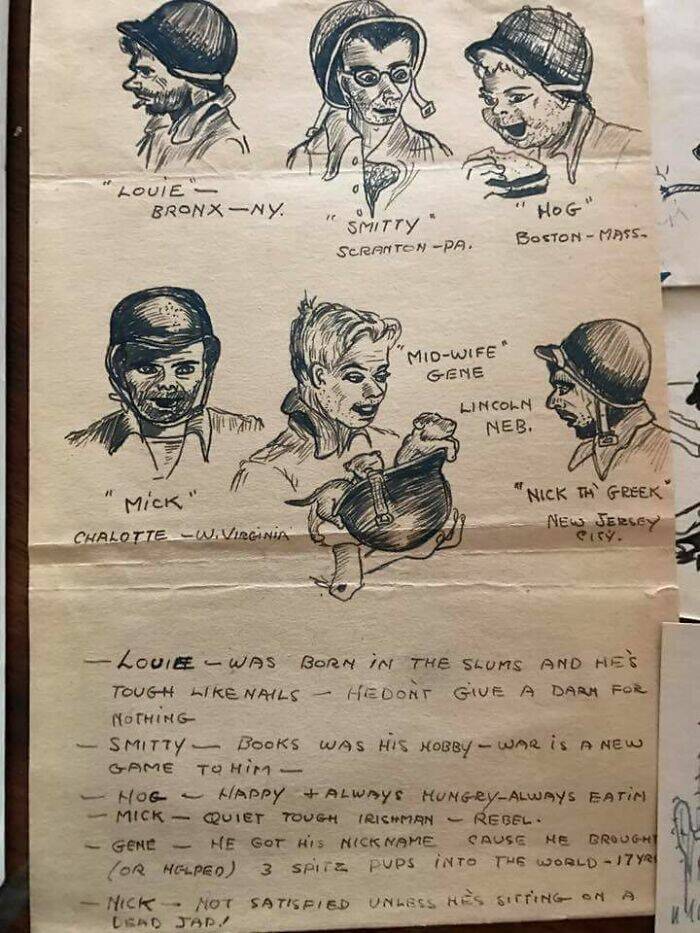 "LOUIE" —
BRONX — NY.
"SMITTY"
SCRANTON - PA.
"HOG"
BOSTON - MASS-
"MICK"
CHALOTTE - W. VIRGINIA
"MID-WIFE"
GENE
LINCOLN
NEB.
"NICK TH' GREEK"
NEW JERSEY
CITY.
— LOUIE — WAS BORN IN THE SLUMS AND HE'S
TOUGH LIKE NAILS — HE DON'T GIVE A DARN FOR
NOTHING
— SMITTY — BOOKS WAS HIS HOBBY — WAR IS A NEW
GAME TO HIM —
— HOG — HAPPY + ALWAYS HUNGRY - ALWAYS EATIN
— MICK — QUIET TOUGH IRISHMAN — REBEL.
— GENE — HE GOT HIS NICKNAME CAUSE HE BROUGHT
(OR HELPED) 3 SPITZ PUPS INTO THE WORLD - 17YR
— NICK — NOT SATISFIED UNLESS HE'S SITTING ON A
DEAD JAP!